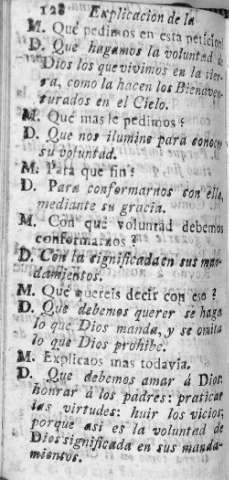 128 Explicacion de la
M. Qué pedimos en esta peticion?
D. Que hagamos la voluntad de
Dios los que vivimos en la tier-
ra, como la hacen los Bienaven-
turados en el Cielo.
M. Qué mas le pedimos?
D. Que nos ilumine para conocer
su voluntad.
M. Para qué fin?
D. Para conformarnos con ella,
mediante su gracia.
M. Con qué voluntad debemos
conformarnos?
D. Con la significada en sus man-
damientos.
M. Qué quereis decir con eso?
D. Que debemos querer se haga
lo que Dios manda, y se omita
lo que Dios prohibe.
M. Explicaos mas todavia.
D. Que debemos amar á Dios:
honrar á los padres: praticar
las virtudes: huir los vicios,
porque asi es la voluntad de
Dios significada en sus manda-
mientos.